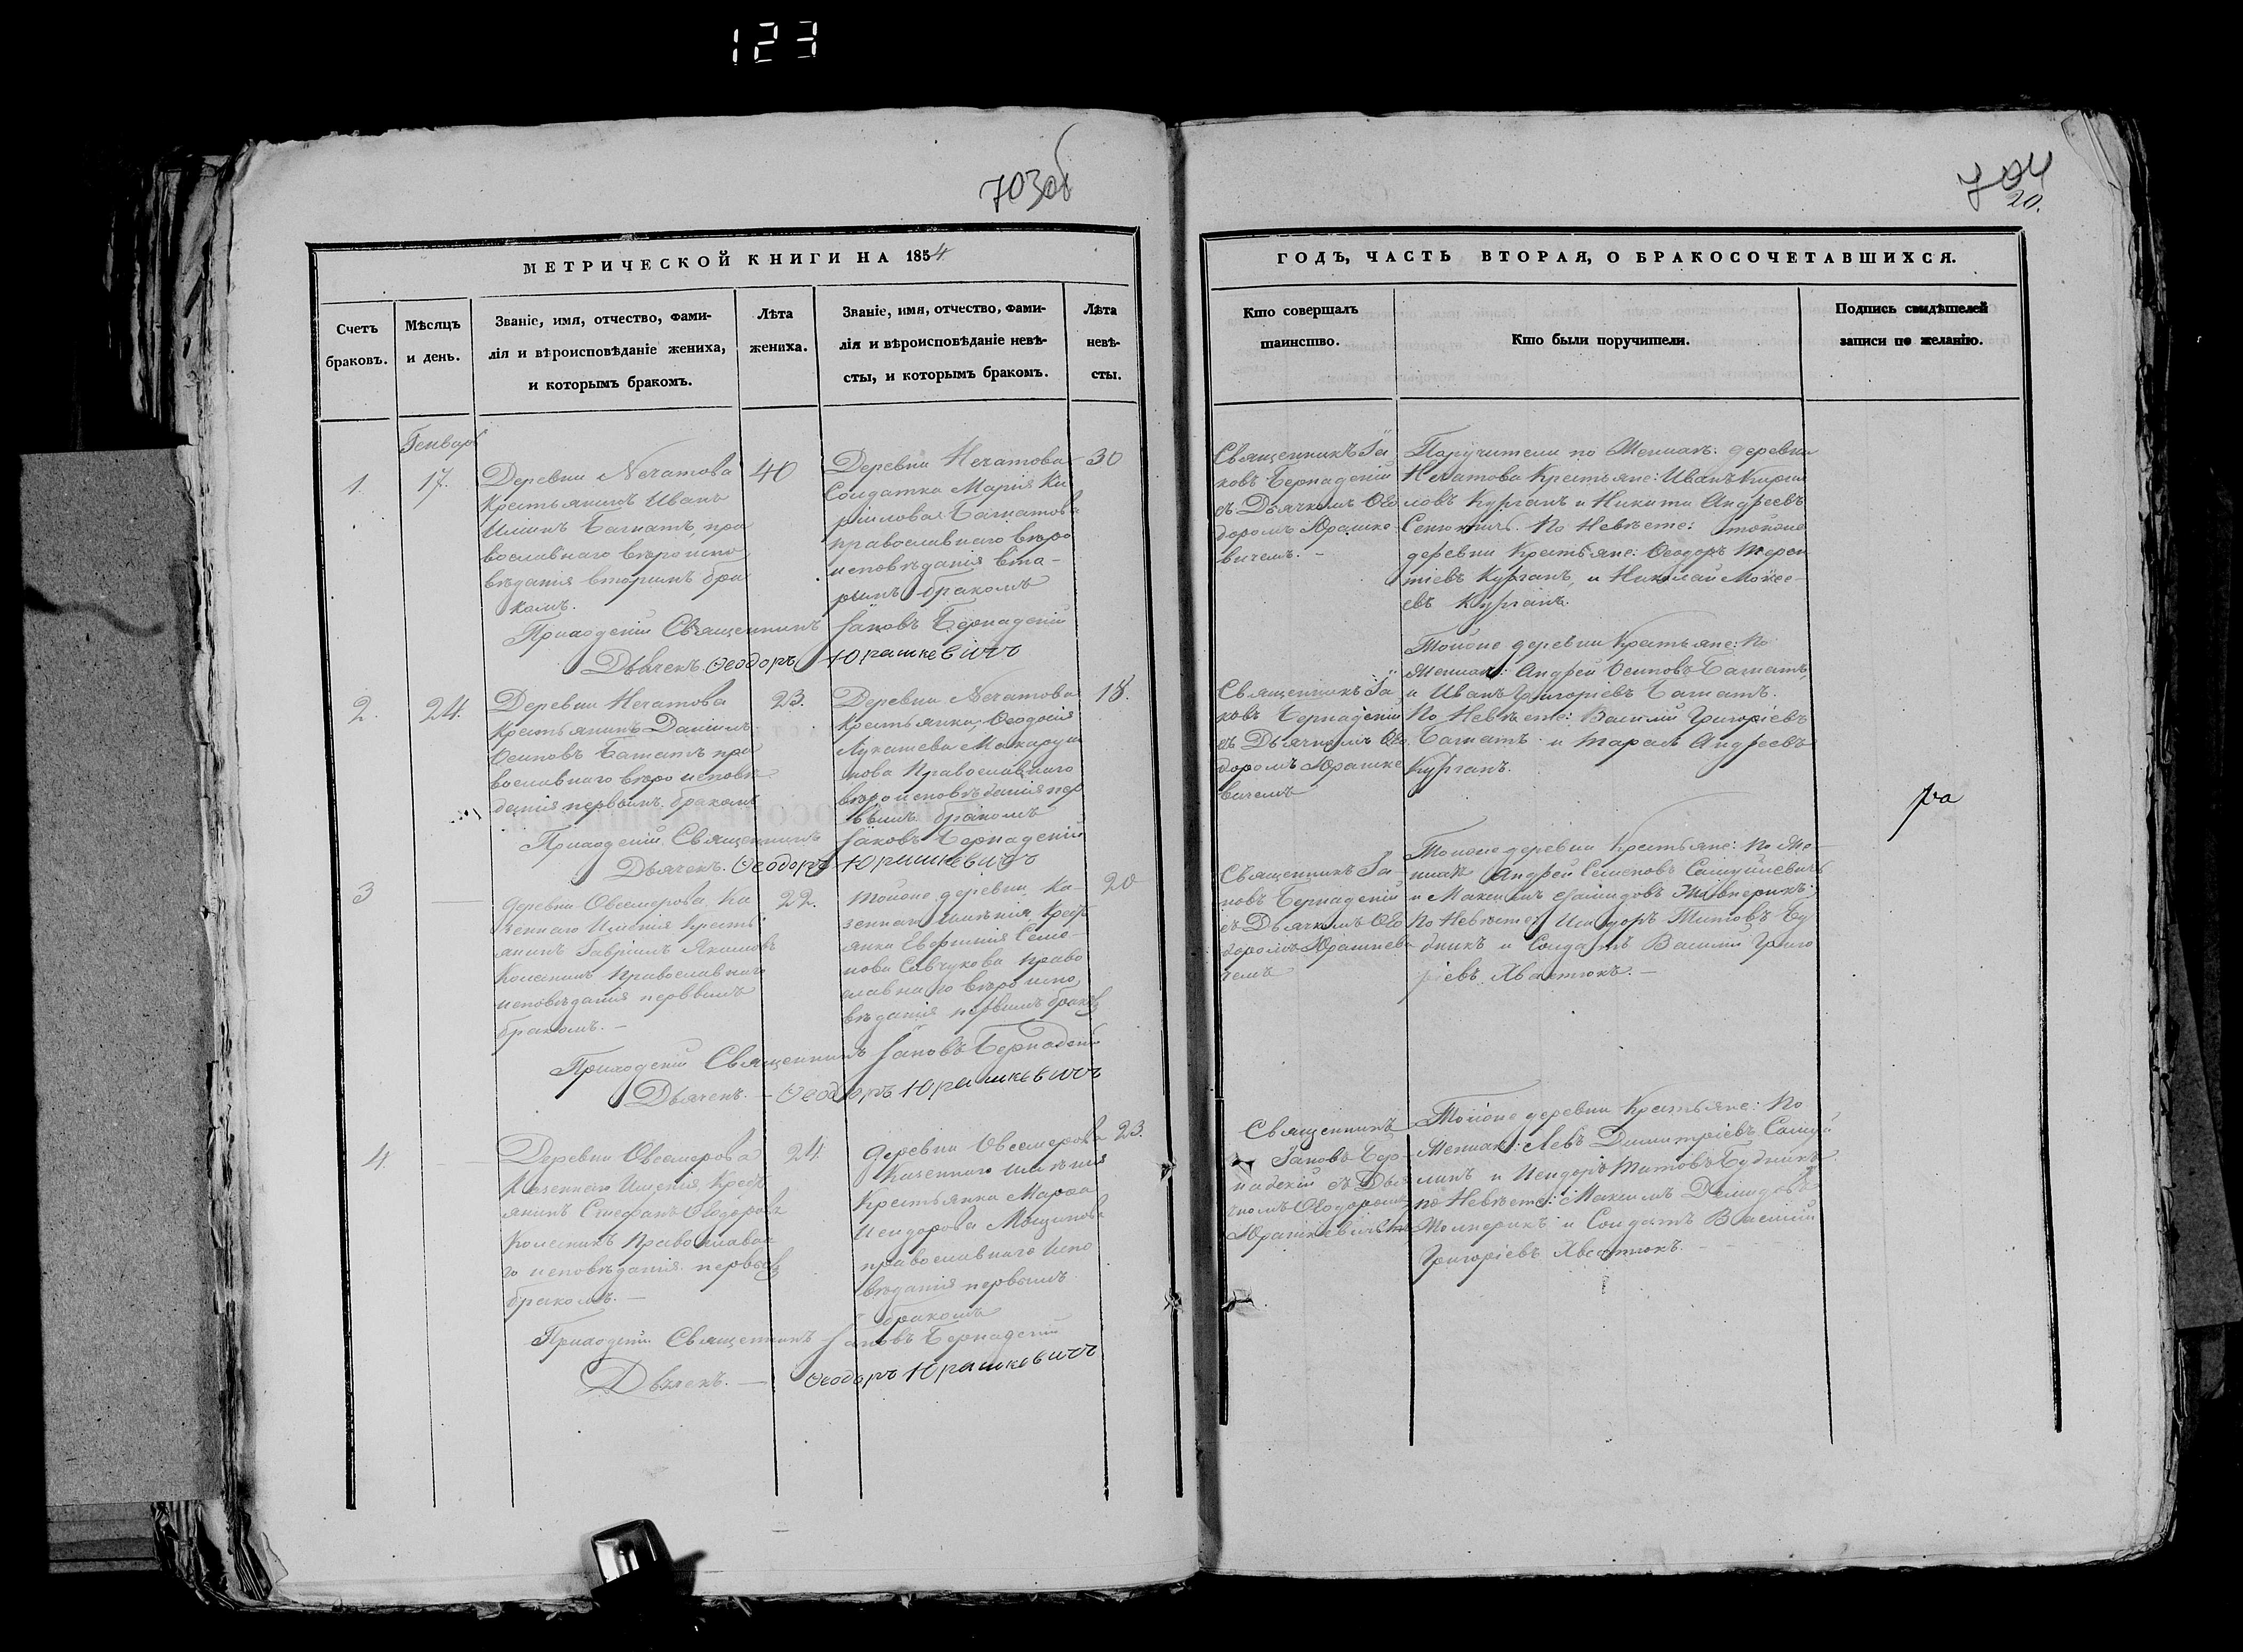 123
703об
704
20.
МЕТРИЧЕСКОЙ КНИГИ НА 1854
ГОДЪ, ЧАСТЬ ВТОРАЯ, О БРАКОСОЧЕТАВШИХСЯ.
Счетъ
браковъ.
Мѣсяцъ
и день.
Званіе, имя, отчество, фами-
лія и вѣроисповѣданіе жениха,
и которымъ бракомъ.
Лѣта
жениха.
Званіе, имя, отчество, фами-
лія и вѣроисповѣданіе невѣ-
сты, и которымъ бракомъ.
Лѣта
невѣ-
сты.
Кто совершалъ
таинство.
Кто были поручители.
Подпись свидѣтелей
записи по желанію.
Генваря
1.
17.
Деревни Нечатова
Крестьянинъ Иванъ
Илiинъ Багнатъ, пра
вославнаго вѣроиспо
вѣданія вторымъ бра
комъ.
40
Деревни Нечатова
Солдатка Марія Ки
рилловая Багнатова
православнаго вѣро
исповѣданія вто-
рымъ бракомъ
30
Священникъ Іа
ковъ Бернадскій
съ Дьячкомъ Ѳео
доромъ Юрашке
вичемъ. -
Поручители по Женихѣ: деревни
Нечатова Крестьяне: Иванъ Кирил
ловъ Курганъ и Никита Андреевъ
По Невѣсте: тойоже
деревни Крестьяне: Ѳеодоръ Терен
тіевъ Курганъ, и Николай Моисе-
евъ Курганъ.
Приходскій Священникъ Іаковъ Бернадскій
Дьячекъ Ѳеодоръ Юрашкевичъ
2.
24.
Деревни Нечатова
Крестьянинъ Даніилъ
Осиповъ Багнатъ пра
вославнаго вѣроисповѣ
данія первымъ бракомъ
23.
Деревни Нечатова
Крестьянка, Ѳеодосія
Лукашева Макаруш
кова Православнаго
вѣроисповѣданія пер
вымъ бракомъ
18.
Священникъ Іа
ковъ Бернадскій
съ Дьячкомъ Ѳео
доромъ Юрашке
вичемъ
Тойоже деревни Крестьяне: По
Женихѣ: Андрей Осиповъ Багнатъ,
и Иванъ Григоріевъ Багнатъ.
По Невѣсте: Василій Григоріевъ
Багнатъ и Тарасъ Андреевъ
Курганъ.
Приходскій Священникъ Іаковъ Бернадскій
Дьячекъ. Ѳеодоръ Юрашкевичъ
3
Деревни Овсемерова Ка
зеннаго Имѣнія Кресть
янинъ Гавріилъ Якимовъ
Православнаго
исповѣданія первымъ
бракомъ. -
22.
Тойоже деревни, Ка-
зеннаго Имѣнія, Крест
янка Евфимія Семе-
нова Савчукова право
славнаго вѣроиспо
вѣданія первымъ бракомъ
20
Священникъ Іа-
ковъ Бернадскій
съ Дьячкомъ Ѳео
доромъ Юрашкеви
чемъ
Тойоже деревни Крестьяне: По Же-
нихѣ Андрей Семеновъ
и Максимъ Демидовъ
По Невѣсте: Исидоръ Титовъ Бу
дникъ и Солдатъ Василій Григо
ріевъ Хвостюкъ. -
Приходскій Священникъ Іаковъ Бернадскій
Дьячекъ. - Ѳеодоръ Юрашкевичъ
4.
Деревни Овсемерова
Казеннаго Имѣнія Крест
янинъ Стефанъ Ѳеодоровъ
Колесникъ Православна
го исповѣданія первымъ
бракомъ. -
24.
Деревни Овсемерова
Казеннаго имѣнія
Крестьянка Марѳа
Исидорова
православнаго испо
вѣданія первымъ
бракомъ
23.
Священникъ
Іаковъ Бер-
надскій съ Дья
чкомъ Ѳеодоромъ
Юрашкевичемъ
Тойоже деревни Крестьяне: По
Женихѣ: Левъ Димитріевъ Самуй
ликъ и Исидоръ Титовъ Будникъ
по Невѣсте: Максимъ Демидовъ
и Солдатъ Василій
Григоріевъ Хвостюкъ. -
Приходскій Священникъ Іаковъ Бернадскій
Дьячекъ. - Ѳеодоръ Юрашкевичъ